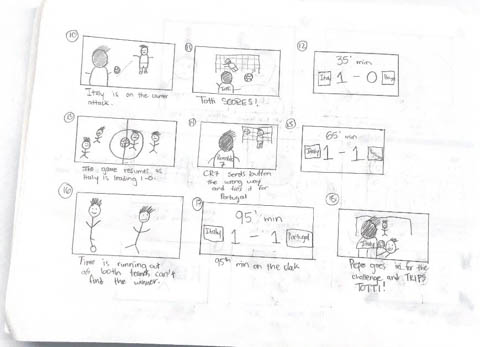 10
Italy is on the
attack.
11
Totti SCORES!
12
35' min
Italy 1 - 0
13
The game resumes as
Italy is leading 1-0.
14
Ronaldo
7
CR7 sends button
the wrong way
and ties it for
Portugal
15
65' min
Italy 1 - 1
16
Time is running out
as both teams can't
find the winner.
17
95' min
Italy 1 - 1 Portugal
95th min on the clock
18
Italy
Pepe goes in for the
challenge and TRIPS
TOTTI!